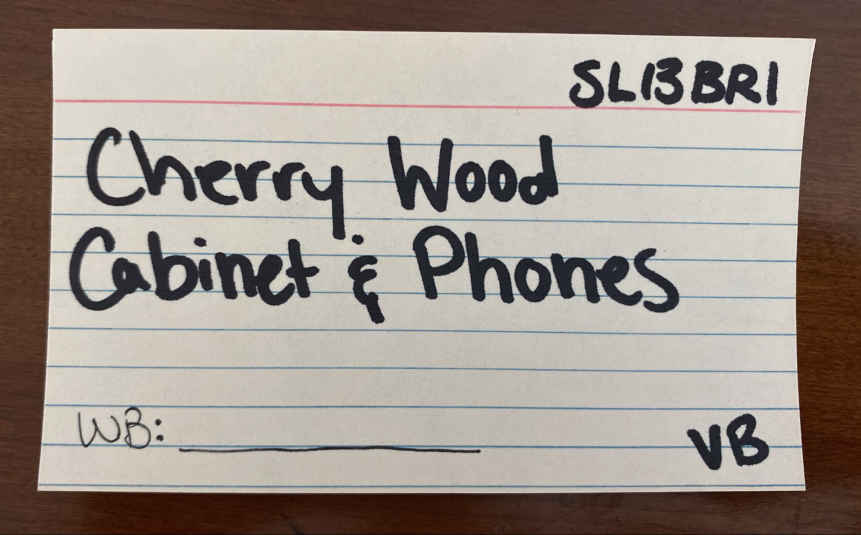 SL13BR1
Cherry Wood
Cabinet & Phones
WB: ____________
VB